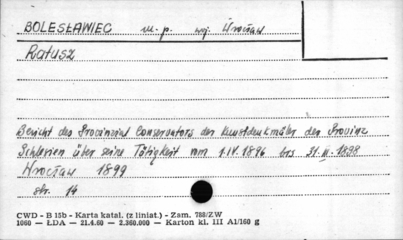 BOLESŁAWIEC m. p. woj. Wrocław
Ratusz
Bericht des Provinzial Conservators der Kunstdenkmäler der Provinz
Schlesien über seine Tätigkeit vom 1.IV.1896 bis 31.III.1898
Wrocław 1899
str. 14
CWD - B 15b - Karta katal. (z liniat.) - Zam. 788/ZW
1060 — ŁDA — 21.4.60 — 2.360.000 — Karton kl. III A1/160 g